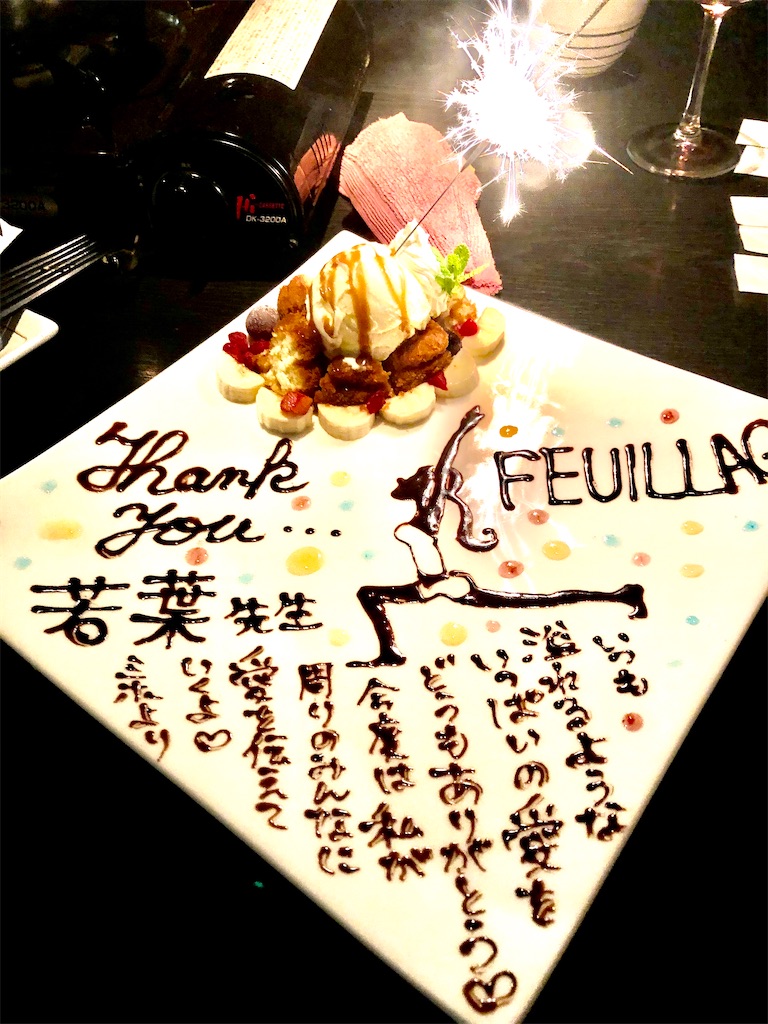 DK-3200A
Thank
You...
FEUILLAG
若葉先生
いつも
溢れるような
いっぱいの愛を
どうもありがとう♡
今度は私が
周りのみんなに
愛を伝えて
いくよ♡
より